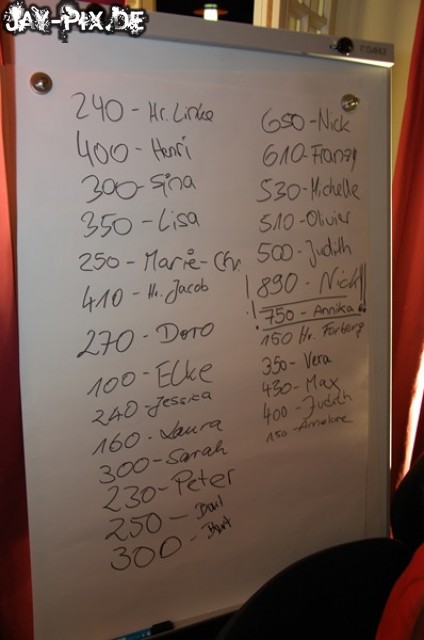 JAY-PIX.DE
240 - Hr. Linke
400 - Henri
300 - Sina
350 - Lisa
250 - Marie-Chr.
410 - Hr. Jacob
270 - Doro
100 - Elke
240 - Jessica
160 - Laura
300 - Sarah
230 - Peter
250 -
300 -
650 - Nick
610 - Franzy
530 - Michelle
510 - Olivier
500 - Judith
! 890 - Nick !!
! 750 - Annika !
150 Hr. Forberg
350 - Vera
430 - Max
400 - Judith
150 -